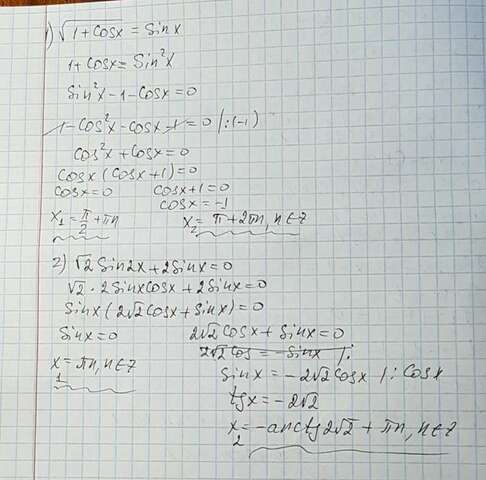 1) √1+cosx = sinx
1+cosx = sin²x
sin²x-1-cosx=0
1-cos²x-cosx-1=0 |:(-1)
cos²x+cosx=0
cosx(cosx+1)=0
cosx=0 cosx+1=0
cosx=-1
x₁=π/2+πn x₂= π+2πn, n∈z
2) √2 sin2x+2sinx=0
√2 · 2sinxcosx+2sinx=0
sinx(2√2cosx+sinx)=0
sinx=0 2√2cosx+sinx=0
2√2cos=-sinx |:
x₁=πn, n∈z sinx=-2√2cosx |:cosx
tgx=-2√2
x₂=-arctg2√2+πn, n∈z